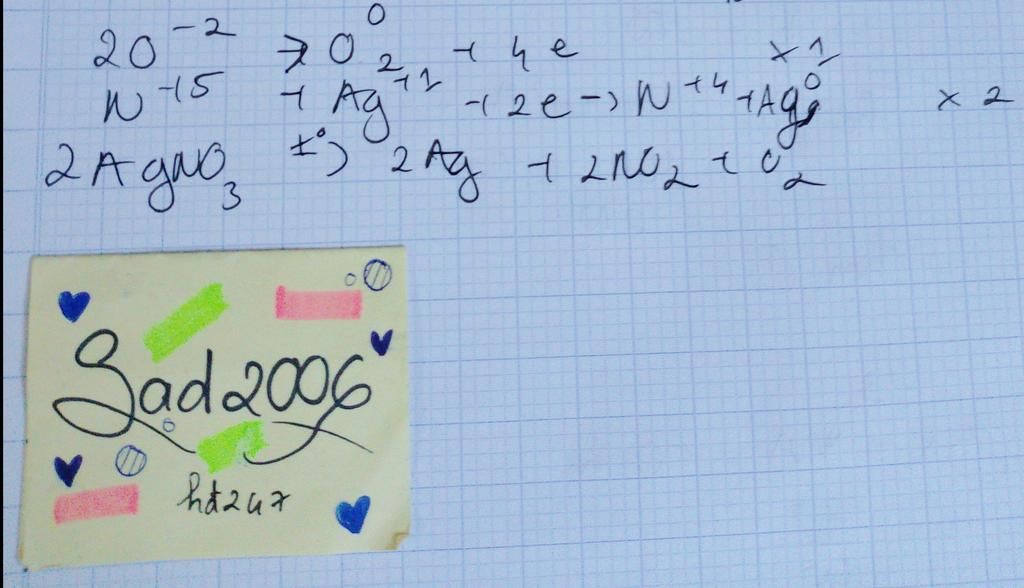 2O⁻² → O₂⁰ + 4e ×1
N⁺⁵ + Ag⁺¹ + 2e → N⁺⁴ + Ag⁰ ×2
2AgNO₃ t° → 2Ag + 2NO₂ + O₂
Sad2006
hd247